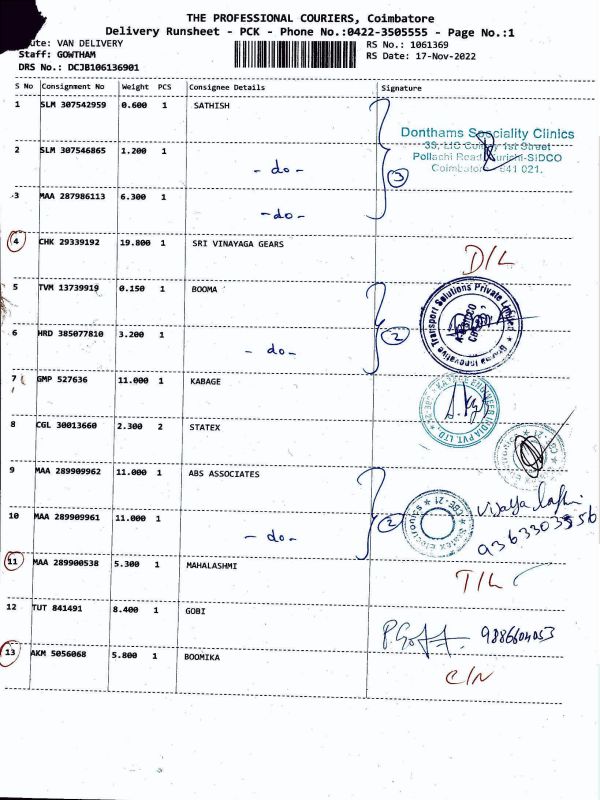 THE PROFESSIONAL COURIERS, Coimbatore
Delivery Runsheet - PCK - Phone No.:0422-3505555 - Page No.:1
ute: VAN DELIVERY
RS No.: 1061369
Staff: GOWTHAM
RS Date: 17-Nov-2022
DRS No.: DCJB106136901
S No Consignment No Weight PCS Consignee Details Signature
1 SLM 307542959 0.600 1 SATHISH
Donthams Speciality Clinics
39, LIC Colony 1st Street
Pollachi Road, Kurichi-SIDCO
Coimbatore - 641 021.
2 SLM 307546865 1.200 1 - do -
3
3 MAA 287986113 6.300 1 - do -
4 CHK 29339192 19.800 1 SRI VINAYAGA GEARS D/L
5 TVM 13739919 0.150 1 BOOMA
Innovative Transport Solutions Private Limited
6 HRD 385077810 3.200 1 - do - 2
7 GMP 527636 11.000 1 KABAGE
INDIA PVT. LTD.
8 CGL 30013660 2.300 2 STATEX
9 MAA 289909962 11.000 1 ABS ASSOCIATES
CBE-21
10 MAA 289909961 11.000 1 - do - 2
11 MAA 289900538 5.300 1 MAHALASHMI T/L
12 TUT 841491 8.400 1 GOBI
13 AKM 5056068 5.800 1 BOOMIKA C/N